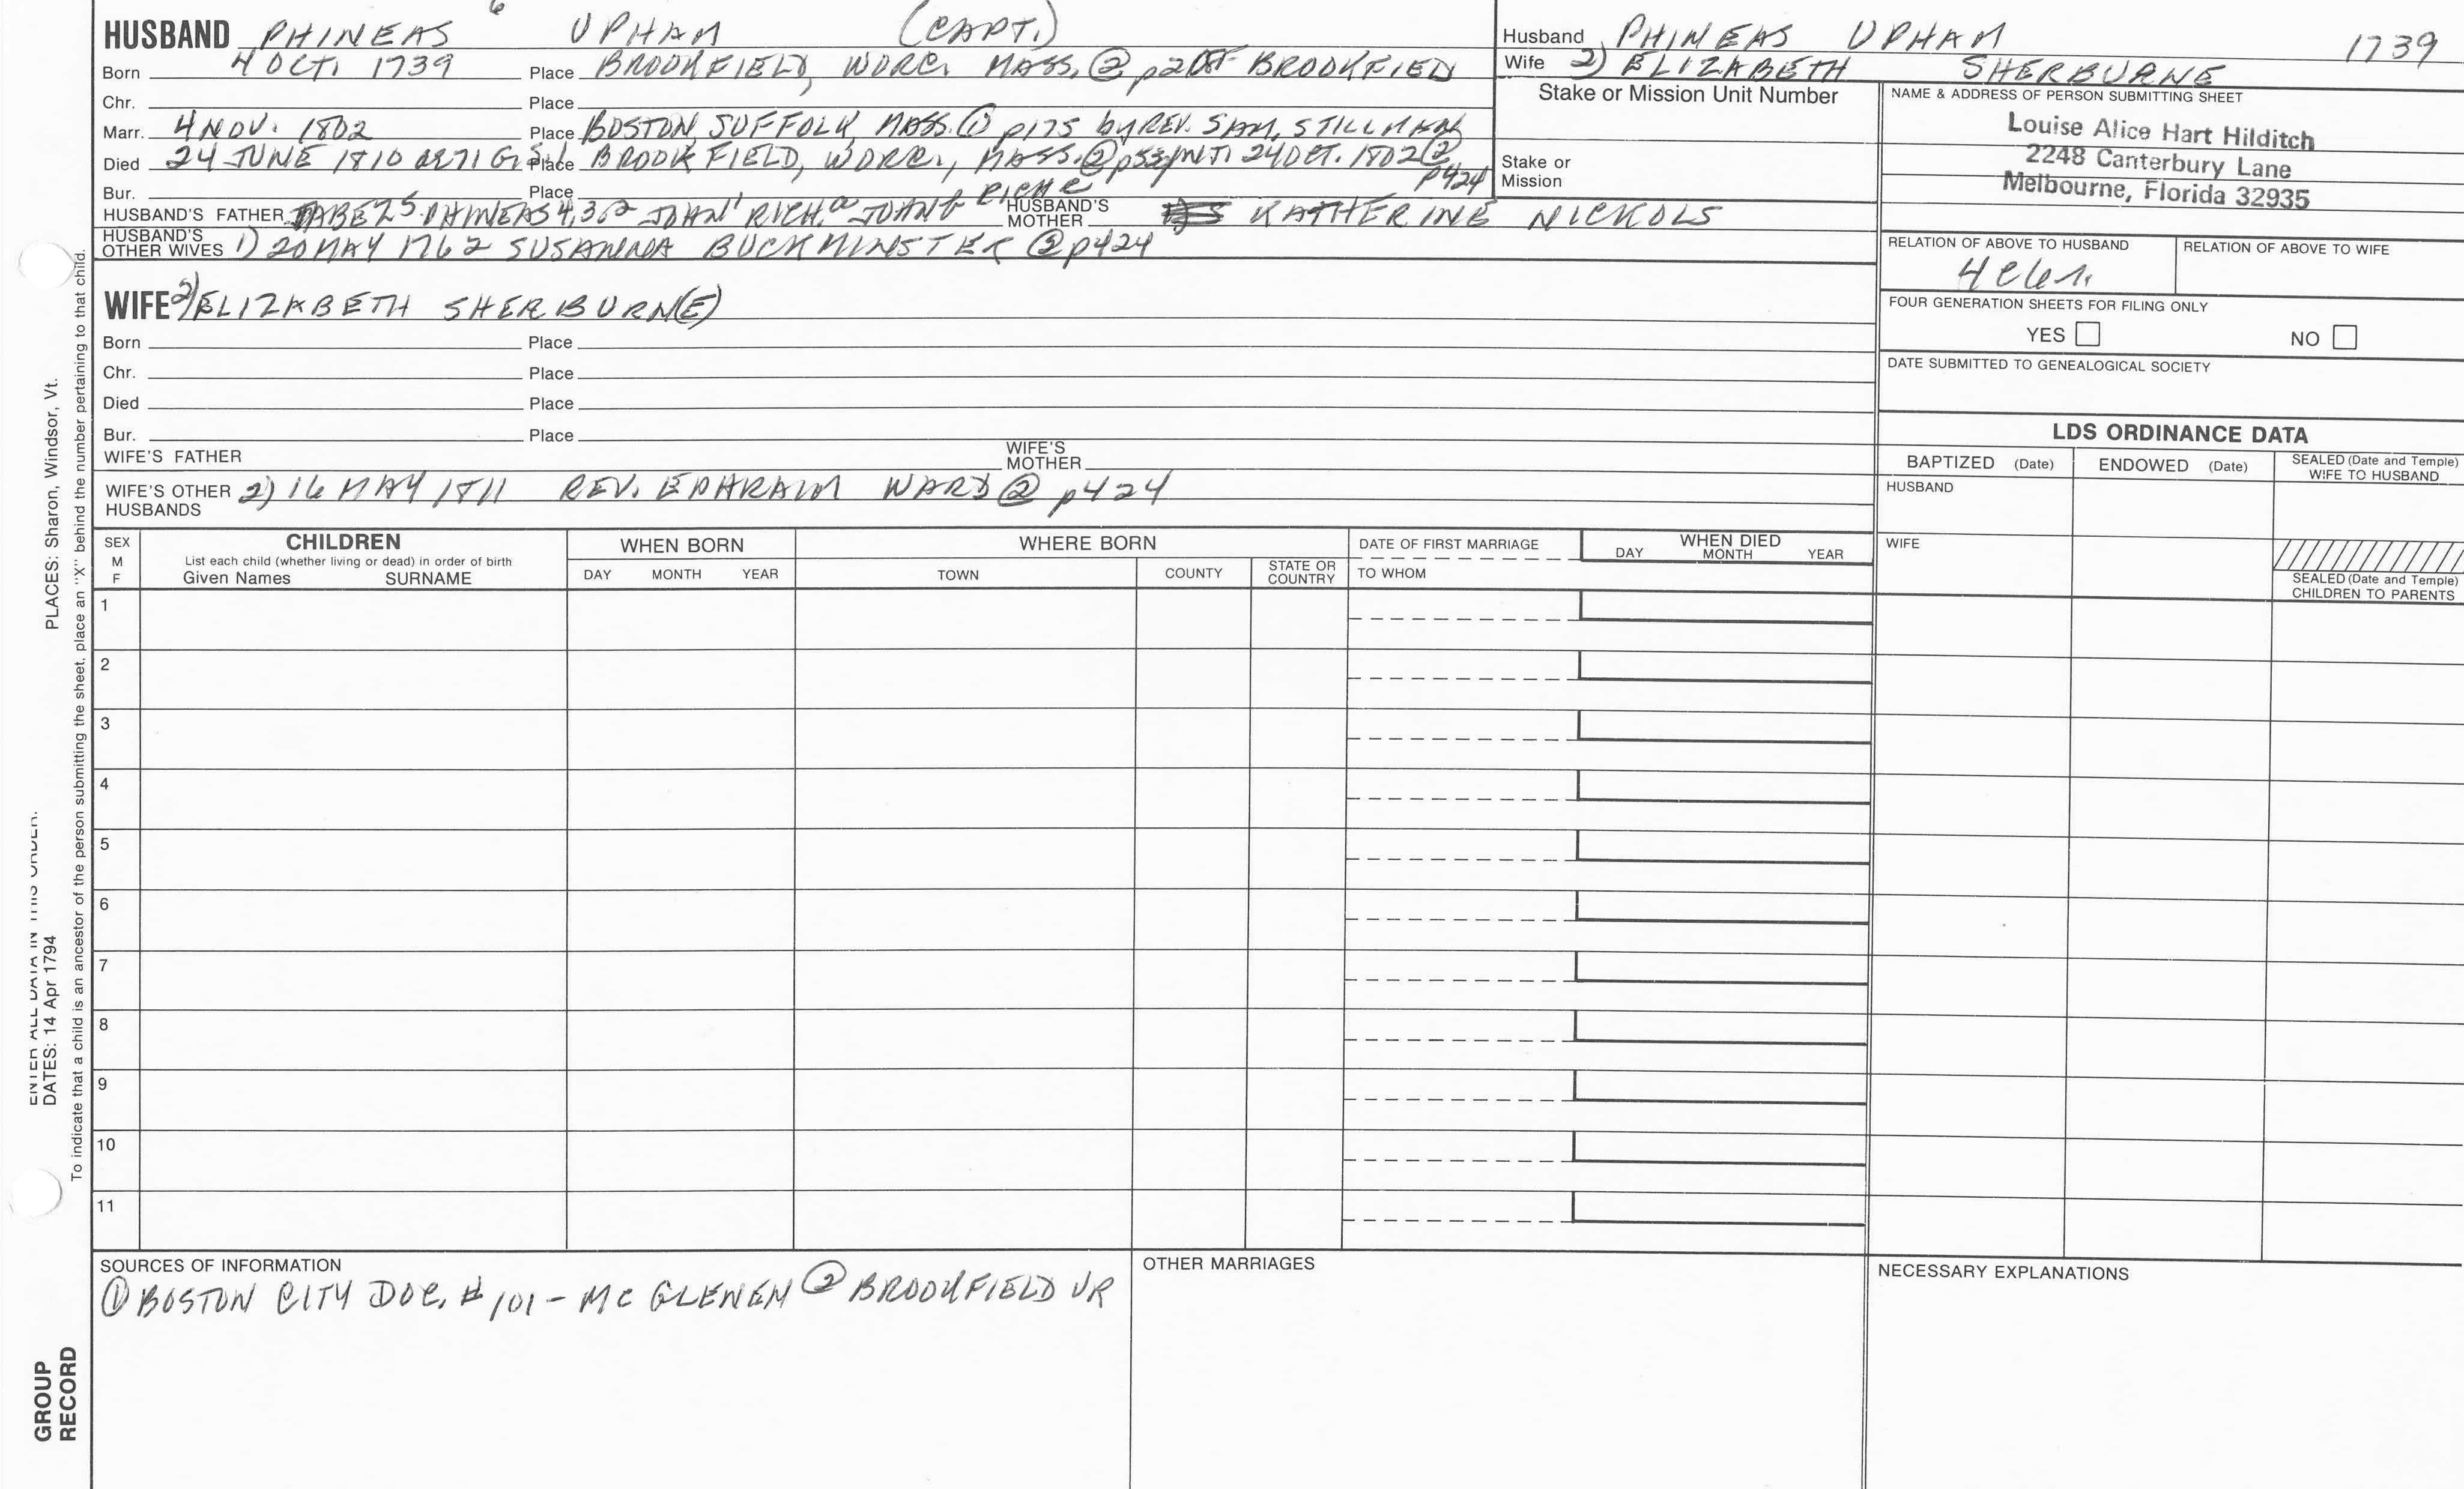 6
HUSBAND PHINEAS UPHAM (CAPT.)
Born 4 OCT. 1739 Place BROOKFIELD, WORC. MASS. ② BROOKFIED
Chr. Place
Marr. 4 NOV. 1802 Place BOSTON, SUFFOLK, MASS. ① p175 by REV. SAM. STILLMAN
Died 24 JUNE 1810 AE 71 G.S.1 Place BROOKFIELD, WORC., MASS. ② INT. 24 OCT. 1802 ② p424
Bur. Place
HUSBAND'S FATHER JABEZ 5 PHINEAS 4,3,2 JOHN 1 RICH. JOHN HUSBAND'S MOTHER KATHERINE NICKOLS
HUSBAND'S OTHER WIVES 1) 20 MAY 1762 SUSANNA BUCKMINSTER ② p424
WIFE 2) ELIZABETH SHERBURN(E)
Born Place
Chr. Place
Died Place
Bur. Place
WIFE'S FATHER WIFE'S MOTHER
WIFE'S OTHER HUSBANDS 2) 16 MAY 1811 REV. EPHRAIM WARD ② p424
Husband PHINEAS UPHAM 1739
Wife 2) ELIZABETH SHERBURNE
Stake or Mission Unit Number
Stake or Mission
NAME & ADDRESS OF PERSON SUBMITTING SHEET
Louise Alice Hart Hilditch
2248 Canterbury Lane
Melbourne, Florida 32935
RELATION OF ABOVE TO HUSBAND RELATION OF ABOVE TO WIFE
FOUR GENERATION SHEETS FOR FILING ONLY
YES NO
DATE SUBMITTED TO GENEALOGICAL SOCIETY
LDS ORDINANCE DATA
BAPTIZED (Date) ENDOWED (Date) SEALED (Date and Temple) WIFE TO HUSBAND
HUSBAND
WIFE
SEALED (Date and Temple) CHILDREN TO PARENTS
SEX M F
CHILDREN
List each child (whether living or dead) in order of birth
Given Names SURNAME
WHEN BORN
DAY MONTH YEAR
WHERE BORN
TOWN COUNTY STATE OR COUNTRY
DATE OF FIRST MARRIAGE
TO WHOM
WHEN DIED
DAY MONTH YEAR
1
2
3
4
5
6
7
8
9
10
11
SOURCES OF INFORMATION
① BOSTON CITY DOC. # 101 - MC GLENEN ② BROOKFIELD VR
OTHER MARRIAGES
NECESSARY EXPLANATIONS
ENTER ALL DATA IN THIS ORDER.
DATES: 14 Apr 1794 PLACES: Sharon, Windsor, Vt.
To indicate that a child is an ancestor of the person submitting the sheet, place an "X" behind the number pertaining to that child.
GROUP
RECORD